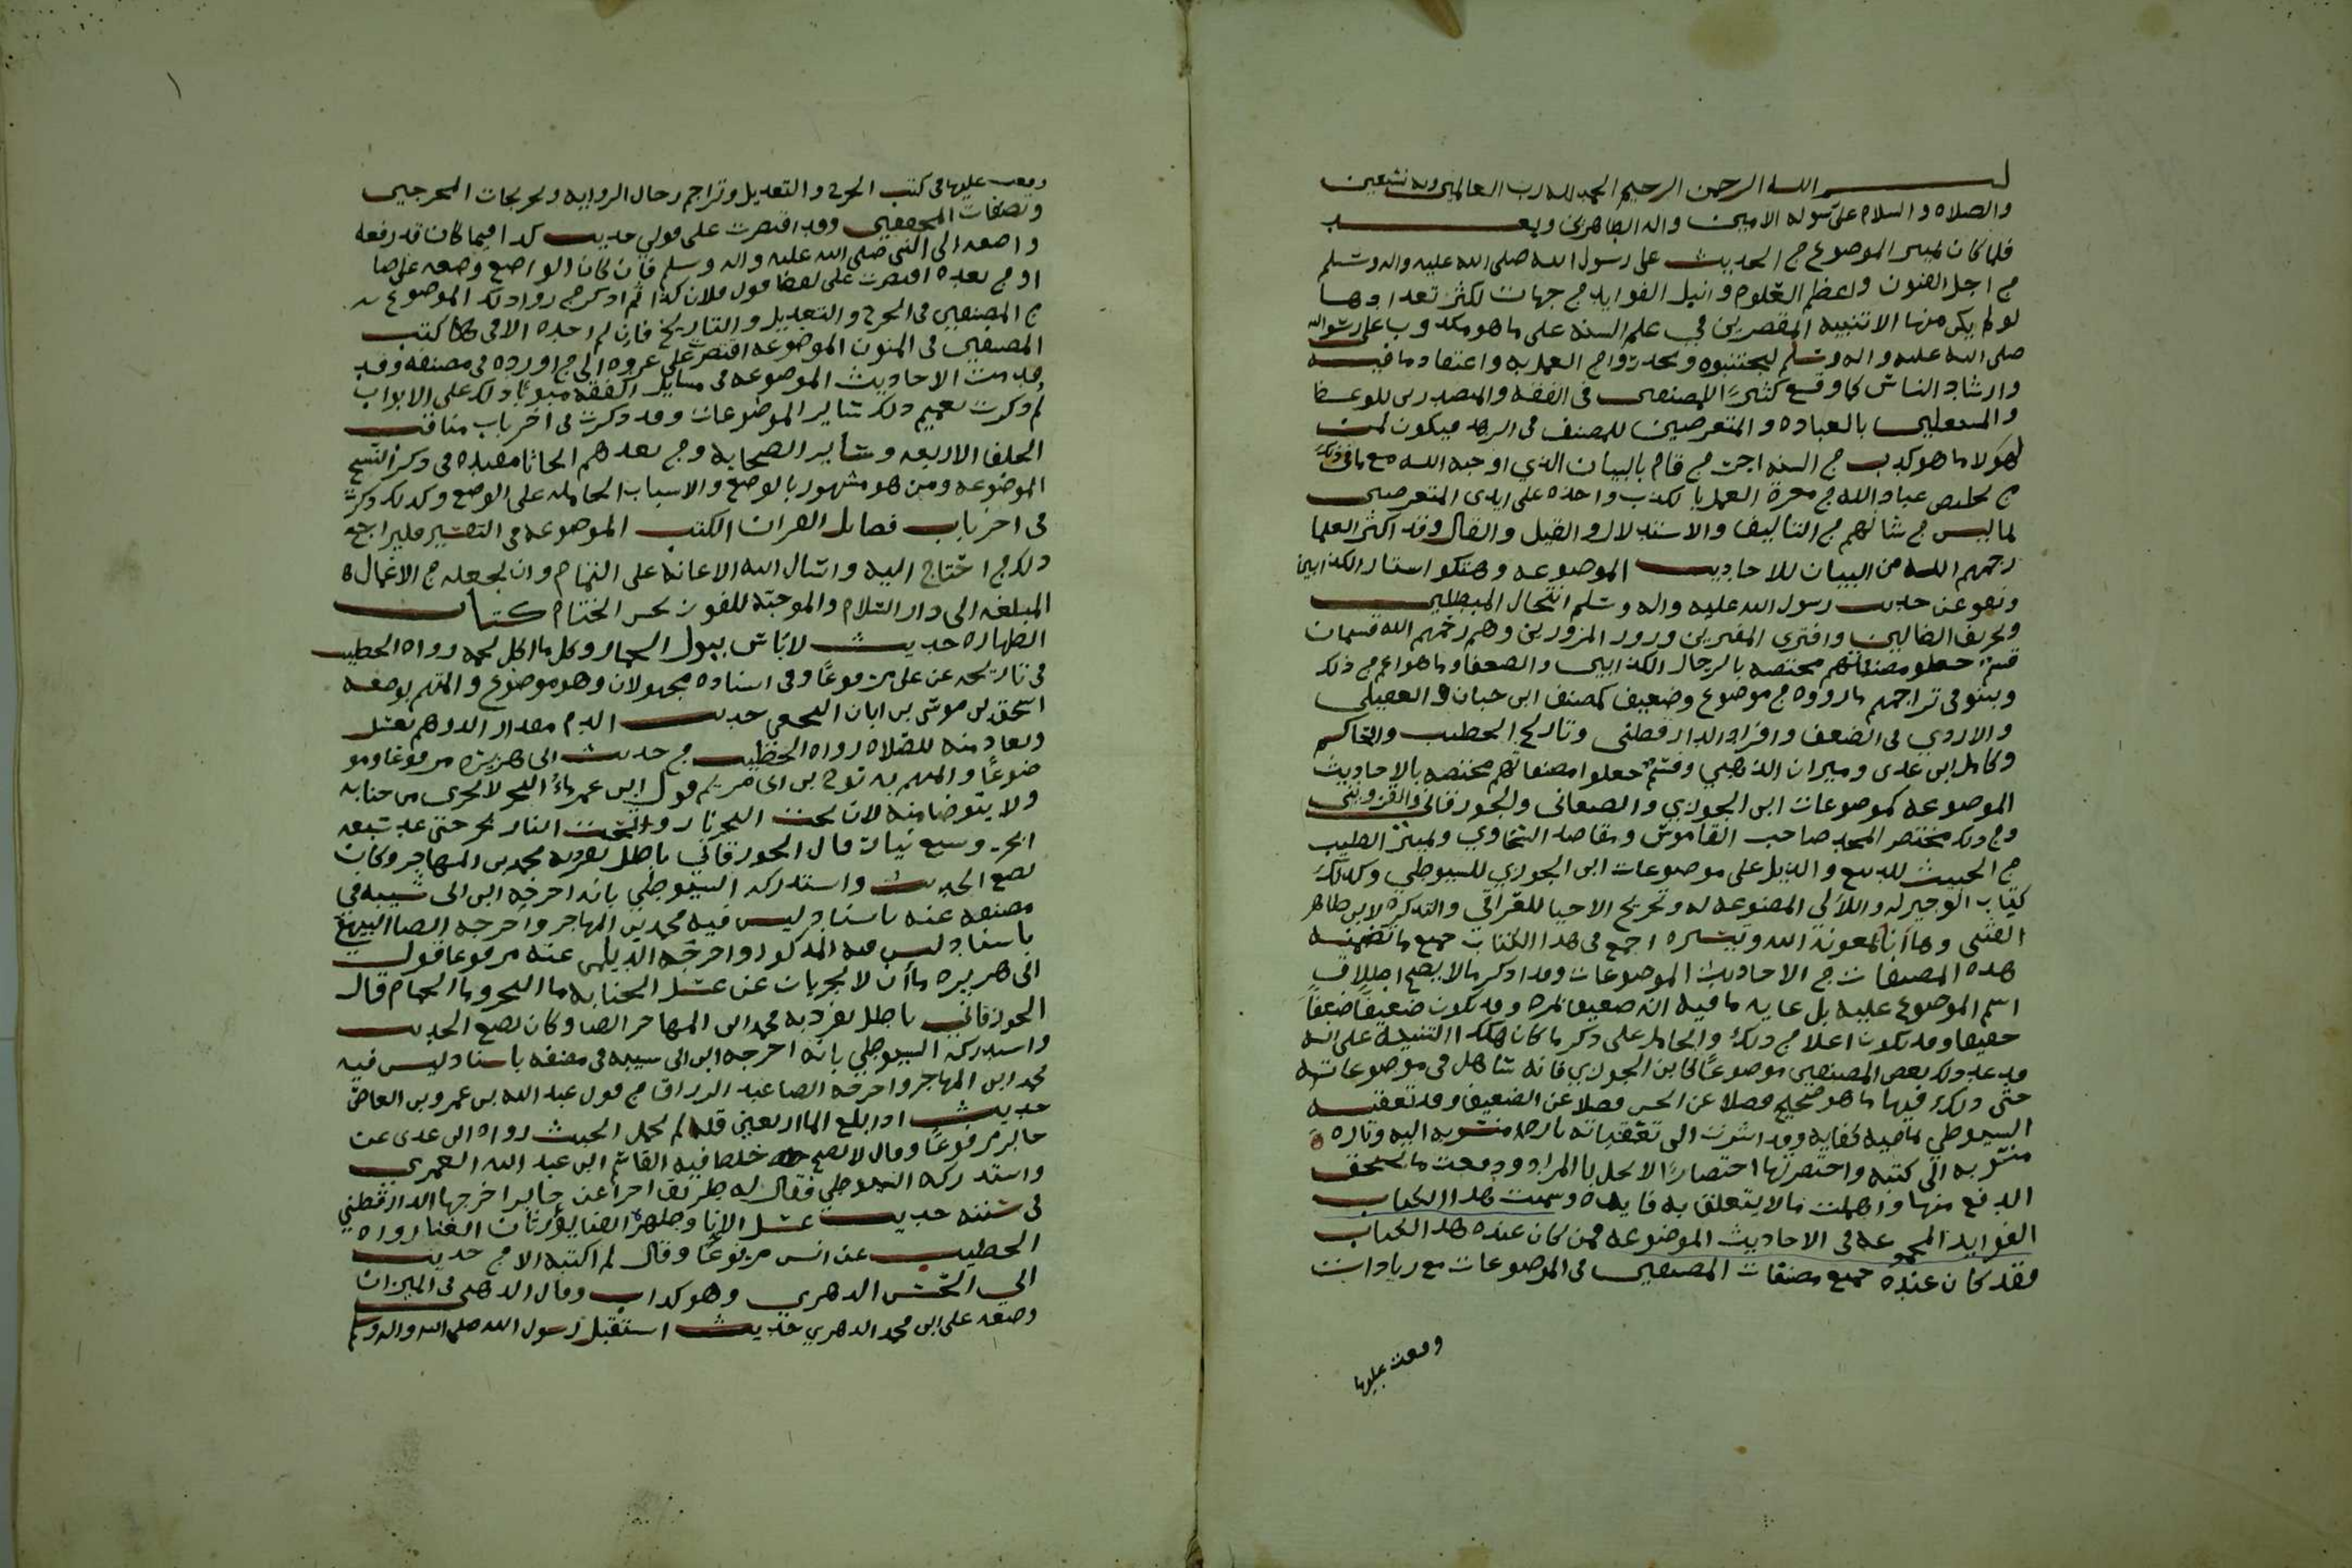 بسم الله الرحمن الرحيم الحمد لله رب العالمين وبه نستعين
والصلاه والسلام على رسوله الامين واله الطاهرين وبعد
فلما كان تمييز الموضوع من الحديث على رسول الله صلى الله عليه واله وسلم
من اجل الفنون واعظم العلوم وانبل الفوايد من جهات لكثر تعدادها
لو لم يكن منها الا تنبيه المقصرين في علم السنه على ما هو مكذوب على رسوله
صلى الله عليه واله وسلم ليجتنبوه ويحذروا من العمل به واعتقاد ما فيه
وارشاد الناس كما وقع كثيرًا للمصنفين في الفقه والمتصدرين للوعظ
والمشتغلين بالعباده والمتعرضين للمصنف في الزهد فيكون لمن
لهولا ما هو كذب من السنه اجر من قام بالبيان الذي اوجبه الله مع ما في ذلك
من تخليص عباد الله من معرة العمل بالكذب واخذه على ايدي المتعرضين
لما ليس من شانهم من التاليف والاستدلال والقيل والقال وقد اكثر العلما
رحمهم الله من البيان للاحاديث الموضوعه وهتكوا استار الكذابين
ونفو عن حديث رسول الله عليه واله وسلم انتحال المبطلين
وتحريف الضالين وافترى المفترين وزور المزورين وهم رحمهم الله قسمان
قسم جعلو مصنفاتهم مختصه بالرجال الكذابين والضعفا وما هو اعم من ذلك
وبينو في تراجمهم ما رووه من موضوع وضعيف كمصنف ابن حبان والعقيلي
والازدي في الضعف وافراد الدارقطني وتاريخ الخطيب والحاكم
وكامل ابن عدى وميزان الذهبي وقسم جعلوا مصنفاتهم مختصه بالاحاديث
الموضوعه كموضوعات ابن الجوزي والصنعاني والجوزقاني والقزويني
ومن ذلك مختصر المجد صاحب القاموس ومقاصد السخاوي وتمييز الطيب
من الخبيث للديبع والذيل على موضوعات ابن الجوزي للسيوطي وكذلك
كتاب الوجيز له واللالي المصنوعه له وتخريج الاحيا للعراقي والتذكره لابن طاهر
الفتنى وها انا بمعونة الله وتيسيره اجمع في هذا الكتاب جميع ما تضمنه
هذه المصنفات من الاحاديث الموضوعات وقد اذكر ما لا يصح اطلاق
اسم الموضوع عليه بل غايه ما فيه انه ضعيف بمره وقد يكون ضعيفًا ضعفًا
خفيفا وقد يكون اعلا من ذلك والحامل على ذكر ما كان هكذا التنبيه على انه
قد عد ذلك بعض المصنفين موضوعًا كابن الجوزي فانه تساهل في موضوعاته
حتى ذكر فيها ما هو صحيح فضلا عن الحسن فضلا عن الضعيف وقد تعقبه
السيوطي بما فيه كفايه وقد اشرت الى تعقباته تارة منسوبه اليه وتاره
منسوبه الى كتبه واختصرتها اختصارًا لا يخل بالمراد ودفعت ما يستحق
الدفع منها واهملت ما لا يتعلق به فايده وسميت هذا الكتاب
الفوايد المجموعه في الاحاديث الموضوعه فمن كان عنده هذا الكتاب
فقد كان عنده جميع مصنفات المصنفين في الموضوعات مع زيادات
وقفت عليها
وقفت عليها في كتب الجرح والتعديل وتراجم رجال الروايه وتخريجات المخرجين
وتصنفات المحققين وقد اقتصرت على قولي حديث كذا فيما كان قد رفعه
واضعه الى النبي صلى الله عليه واله وسلم فان كان الواضع وضعه على صحابي
او من بعده اقتصرت على لفظ قول فلان كذا ثم اذكر من روا ذلك الموضوع
من المصنفين في الجرح والتعديل والتاريخ فان لم اجده الا في كتب
المصنفين في المتون الموضوعه اقتصر على عزوه الى من اورده في مصنفه وقد
قدمت الاحاديث الموضوعه في مسايل الفقه مبوبًا ذلك على الابواب
ثم ذكرت بعد ذلك ساير الموضوعات وقد ذكرت في اخر باب مناقب
الخلفا الاربعه وساير الصحابه ومن بعدهم ابحاثا مفيده في ذكر النسخ
الموضوعه ومن هو مشهور بالوضع والاسباب الحامله على الوضع وكذلك ذكرت
في اخر باب فضايل القران الكتب الموضوعه في التفسير فليراجع
ذلك من احتاج اليه واسال الله الاعانه على التمام وان يجعله من الاعمال
المبلغه الى دار السلام والموجبه للفوز بحسن الختام كتاب
الطهاره حديث لا باس ببول الحمار وكل ما اكل لحمه رواه الخطيب
في تاريخه عن على مرفوعًا وفي اسناده مجهولان وهو موضوع والمتهم بوضعه
اسحق بن موسى بن ابان النخعي حديث الدم مقدار الدرهم يغسل
وتعاد منه الصلاه رواه الخطيب من حديث ابى هريره مرفوعا وهو
ضوعًا والمتهم به نوح بن ابى مريم قول ابن عمر ماء البحر لا يجزي من جنابه
ولا يتوضا منه لان تحت البحر نار وتحت النار بحر حتى عد سبعه
ابحر وسبع نيران قال الجوزقاني باطل تفرد به محمد بن المهاجر وكان
يضع الحديث واستدركه السيوطي بانه اخرجه ابن ابى شيبه في
مصنفه عنه باسناد ليس فيه محمد بن المهاجر واخرجه ايضا البيهقي
باسناد ليس فيه المذكور واخرجه الديلمي عنه مرفوعا قول
ابي هريره ماأن لا يجزيان عن غسل الجنابه ما البحر وما الحمام قال
الجوزقاني باطل تفرد به محمد ابن المهاجر ايضا وكان يضع الحديث
واستدركه السيوطي بانه اخرجه ابن ابى شيبه في مصنفه باسناد ليس فيه
محمد ابن المهاجر واخرجه ايضا عبد الرزاق من قول عبد الله بن عمرو بن العاص
حديث اذا بلغ الما اربعين قله لم يحمل الخبث رواه ابن عدى عن
جابر مرفوعًا وقال لا يصح خلط فيه القاسم ابن عبد الله العمري
واستدركه السيوطي فقال له طريق اخرا عن جابر اخرجها الدارقطني
في سننه حديث غسل الانا وطهرة الفنا يورثان الغنا رواه
الخطيب عن انس مرفوعًا وقال لم اكتبه الا من حديث
ابي الحسن الزهري وهو كذاب وقال الذهبي في الميزان
وضعه على ابن محمد الزهري حديث استقبل رسول الله صلى الله واله وسلم